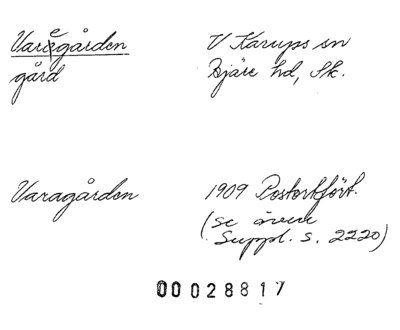 Varegården V Karups sn
gård Bjäre hd, Sk.
Varagården 1909 Postortsört.
(se även
Suppl. s. 2220)
00028817